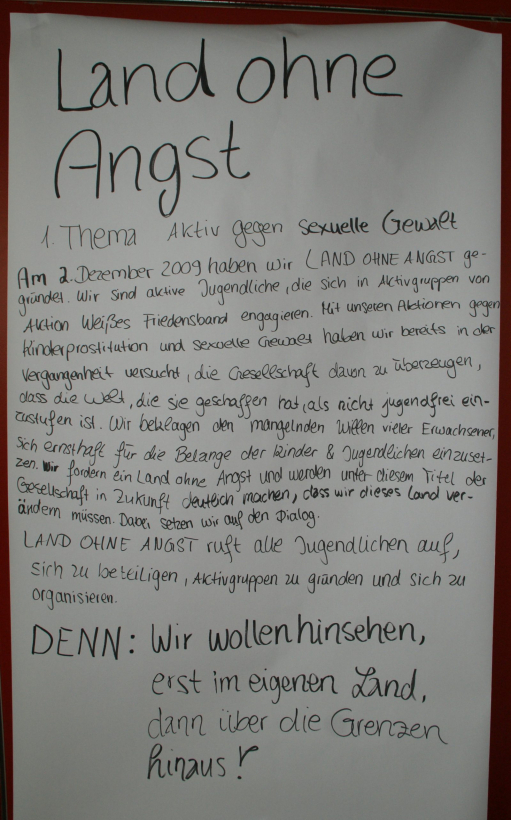 Land ohne
Angst
1. Thema Aktiv gegen sexuelle Gewalt
Am 2. Dezember 2009 haben wir LAND OHNE ANGST ge-
gründet. Wir sind aktive Jugendliche, die sich in Aktivgruppen von
Aktion Weißes Friedensband engagieren. Mit unseren Aktionen gegen
Kinderprostitution und sexuelle Gewalt haben wir bereits in der
Vergangenheit versucht, die Gesellschaft davon zu überzeugen,
dass die Welt, die sie geschaffen hat, als nicht jugendfrei ein-
zustufen ist. Wir beklagen den mangelnden Willen vieler Erwachsener,
sich ernsthaft für die Belange der Kinder & Jugendlichen einzuset-
zen. Wir fordern ein Land ohne Angst und werden unter diesem Titel der
Gesellschaft in Zukunft deutlich machen, dass wir dieses Land ver-
ändern müssen. Dabei setzen wir auf den Dialog.
LAND OHNE ANGST ruft alle Jugendlichen auf,
sich zu beteiligen, Aktivgruppen zu gründen und sich zu
organisieren.
DENN: Wir wollen hinsehen,
erst im eigenen Land,
dann über die Grenzen
hinaus!